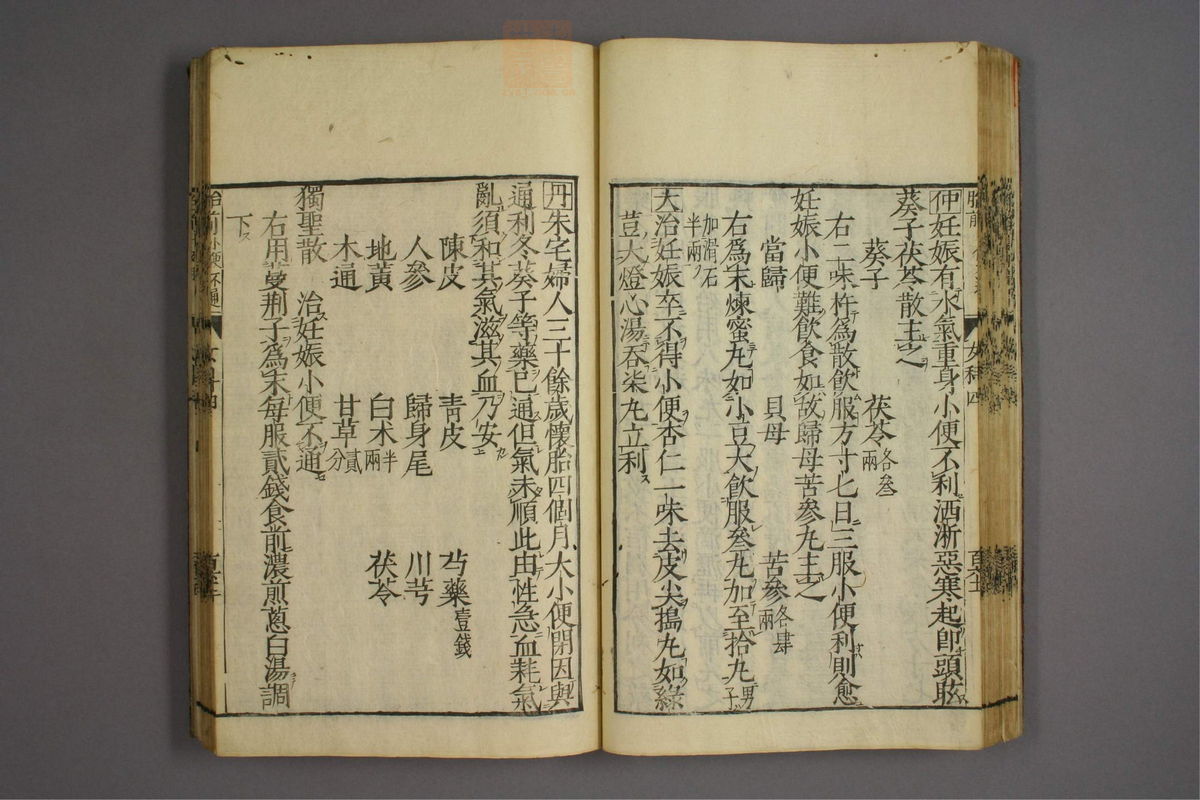 仲妊娠有水氣重身小便不利洒淅惡寒起卽頭眩
葵子茯苓散主之
葵子 茯苓各叄兩
右二味杵為散飲服方寸匕日三服小便利則愈
妊娠小便難飲食如故歸母苦參丸主之
當歸 貝母 苦參各肆兩
右為末煉蜜丸如小豆大飲服叄丸加至拾丸男子
加滑石半兩
大治妊娠卒不得小便杏仁一味去皮尖搗丸如綠
豆大燈心湯吞柒丸立利
丹朱宅婦人三十餘歲懷胎四個月大小便閉因與
通利冬葵子等藥已通但氣未順此由性急血耗氣
亂須和其氣滋其血乃安
陳皮 青皮 芍藥壹錢
人參 歸身尾 川芎
地黃 白朮半兩 茯苓
木通 甘草貳分
獨聖散 治妊娠小便不通
右用蔓荆子為末每服貳錢食前濃煎蔥白湯調
下
胎前 小便不通
女科四